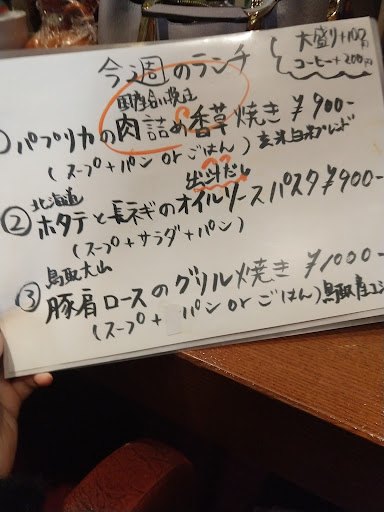 今週のランチ
大盛り+100円
コーヒー+200円
国産合い挽き
①パプリカの肉詰め香草焼き ¥900-
(スープ+パン or ごはん) 玄米白米ブレンド
北海道
出汁だし
②ホタテと長ネギのオイルソースパスタ ¥900-
(スープ+サラダ+パン)
鳥取大山
③豚肩ロースのグリル焼き ¥1000-
(スープ+パン or ごはん) 鳥取産コシ